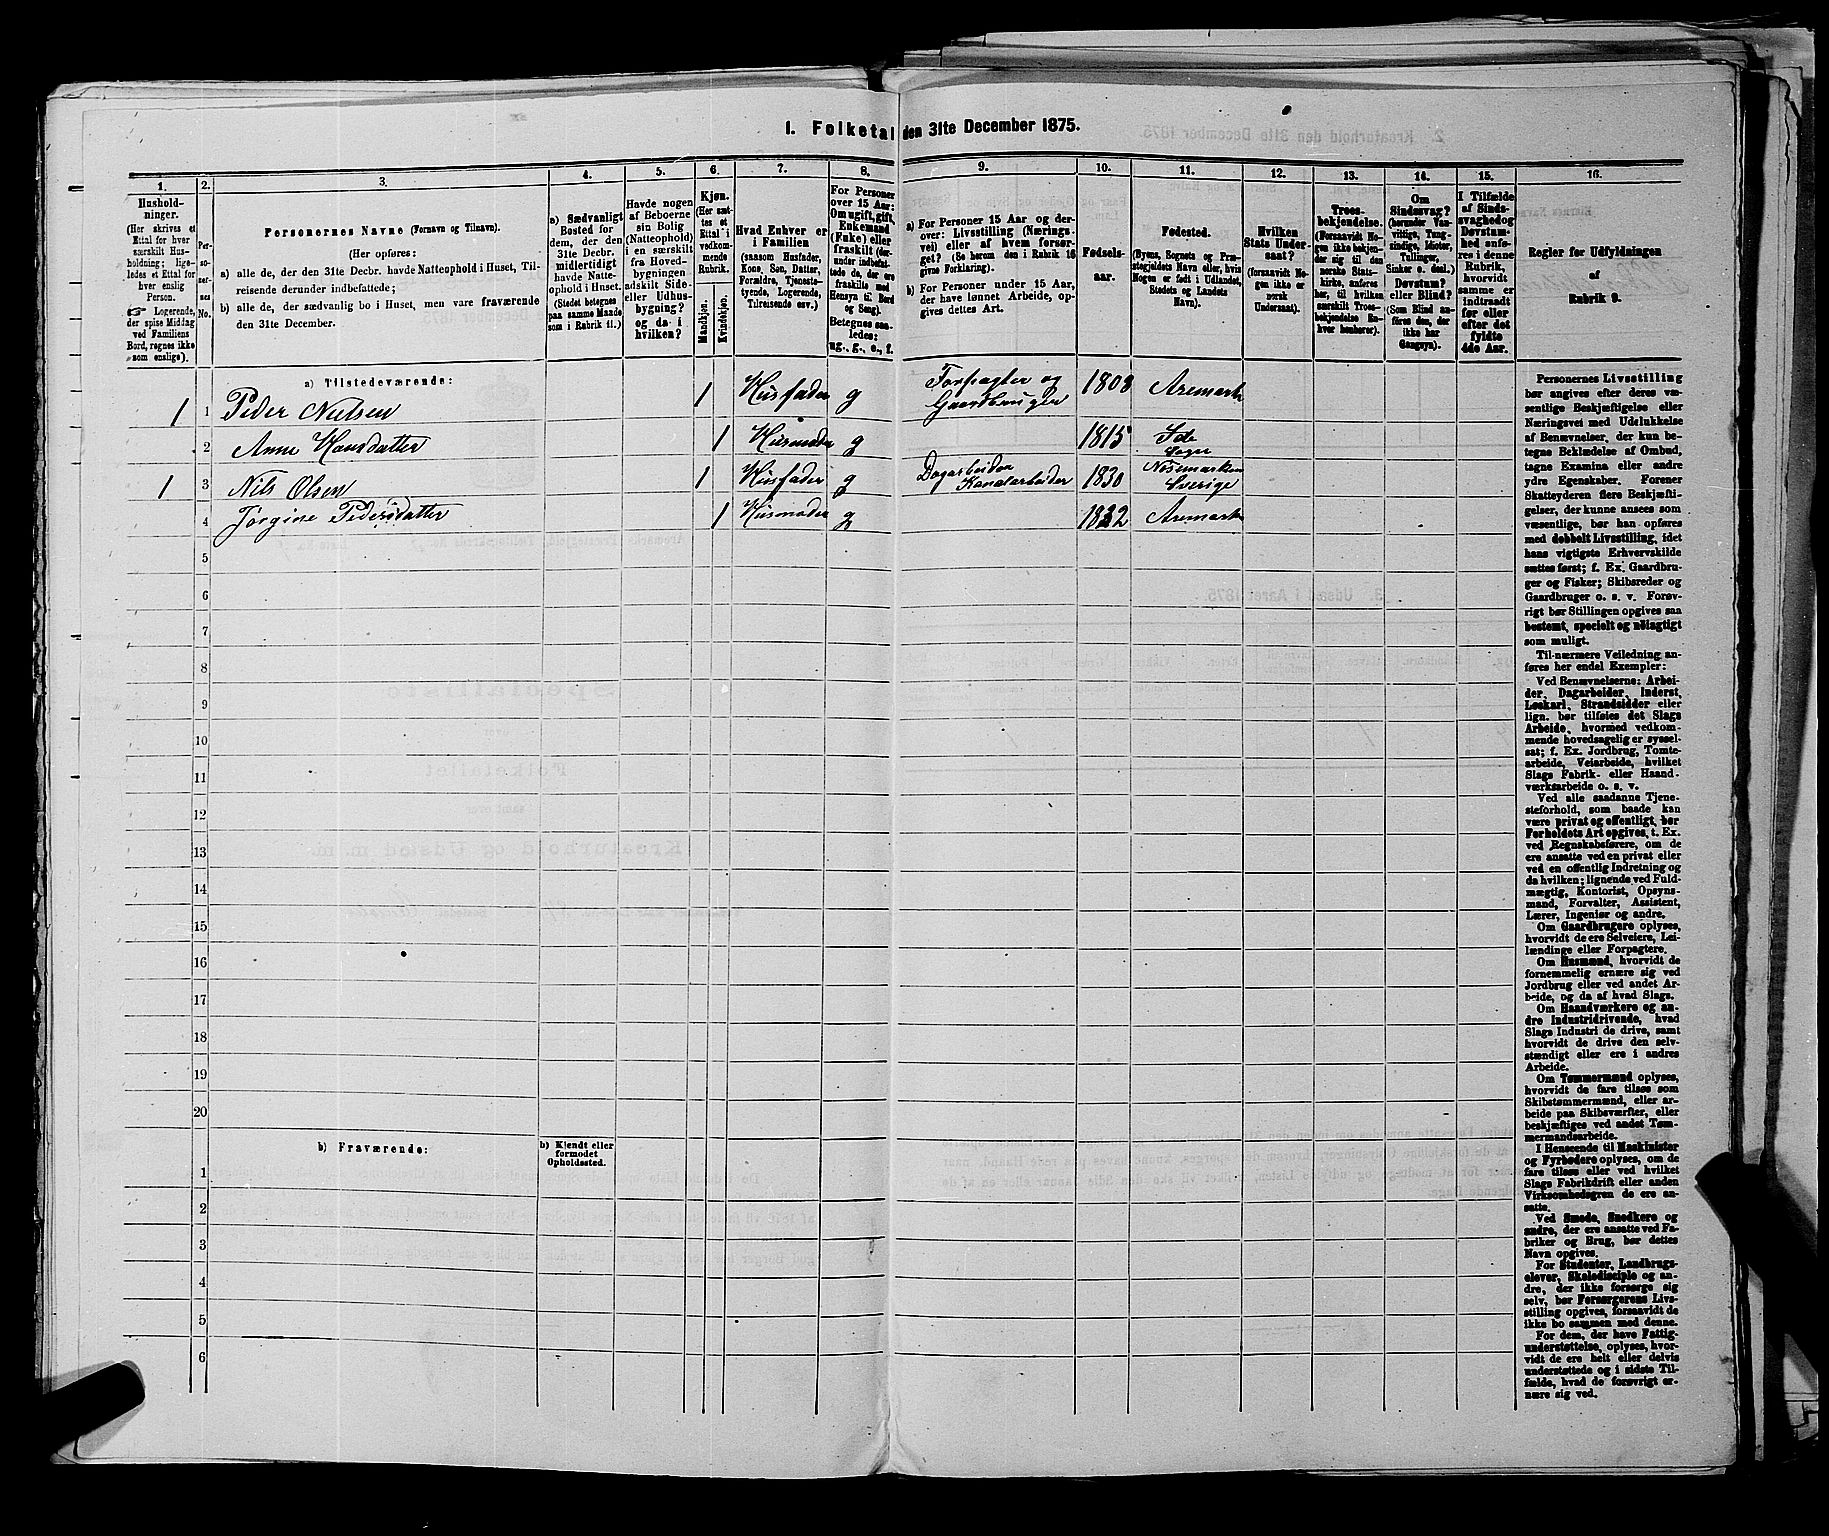 1. Folketal den 31te December 1875.
1.
2.
3.
4.
5.
6.
7.
8.
9.
10.
11.
12.
13.
14.
15.
16.
Husholdninger.
(Her skrives et
Ettal for hver
særskilt Husholdning; ligeledes et Ettal for
hver enslig
Person.
☞ Logerende,
der spise Middag
ved Familiens
Bord, regnes ikke
som enslige).
Personernes No.
Personernes Navne (Fornavn og Tilnavn).
(Her opføres:
a) alle de, der den 31te Decbr. havde Natteophold i Huset, Tilreisende derunder indbefattede;
b) alle de, der sædvanlig bo i Huset, men vare fraværende
den 31te December.
a) Sædvanligt
Bosted for
dem, der den
31te Decbr.
midlertidigt
havde Natteophold i Huset.
(Stedet betegnes
paa samme Maade
som i Rubrik 11.)
Havde nogen
af Beboerne
sin Bolig
(Natteophold)
i en særskilt
fra Hovedbygningen
adskilt Side-
eller Udhusbygning?
og da i
hvilken?
Kjøn.
(Her sættes et
Ettal i
vedkommende
Rubrik.
Mandkjøn.
Kvindekjøn.
Hvad Enhver er
i Familien
(saasom Husfader,
Kone, Søn, Datter,
Forældre, Tjenestetyende, Logerende,
Tilreisende osv.)
For Personer
over 15 Aar:
Om ugift, gift,
Enkemand
(Enke) eller
fraskilt
Betegnes saaledes:
ug., g., e., f.
a) For Personer 15 Aar og derover: Livsstilling (Næringsvei) eller af hvem forsørget? (Se herom den i Rubrik 16
givne Forklaring).
b) For Personer under 15 Aar,
der have lønnet Arbeide, opgives dettes Art.
Fødselsaar.
Fødested.
(Byens, Sognets og Præstegjeldets Navn eller, hvis
Nogen er født i Udlandet,
Stedets og Landets
Navn).
Hvilken
Stats Undersaat?
(forsaavidt Nogen ikke er
norsk
Undersaat).
Troesbekjendelse.
(Forsaavidt Nogen ikke bekjender sig til den
norske Statskirke, anføres
her, til hvilken
særskilt Troesbekjendelse Enhver henhører).
Om
Sindssvag?
(herunder Vanvittige, Tungsindige, Idioter,
Tullinger,
Sinker o. desl.)
Døvstum?
eller Blind?
(Som Blind anføres den, der
ikke har
Gangsyn).
I Tilfælde
af Sindssvaghed og
Døvstumhed anføres i denne
Rubrik,
hvorvidt
samme er
indtraadt
før eller
efter det
fyldte
4de Aar.
Regler for Udfyldningen
af
Rubrik 9.
a) Tilstedeværende:
1 1 Peder Nielsen 1 Husfader g Forpagter og Gaardbruger 1808 Aremark
2 Anne Hansdatter 1 Husmoder g 1815 Ide Sogn
1 3 Nils Olsen 1 Husfader g Dagarbeider Kanalarbeider 1830 Nösemarken Sverige
4 Jørgine Pedersdatter 1 Husmoder g 1832 Aremark
5
6
7
8
9
10
11
12
13
14
15
16
17
18
19
20
b) Fraværende:
b) Kjendt eller
formodet
Opholdssted.
1
2
3
4
5
6
Personernes Livsstilling
bør angives efter deres væsentlige Beskjæftigelse eller
Næringsvei med Udelukkelse
af Benævnelser, der kun betegne Beklædelse af Ombud,
tagne Examina eller andre
ydre Egenskaber. Forener
Skatteyderen flere Beskjæftigelser, der kunne ansees som
væsentlige, bør han opføres
med dobbelt Livsstilling, idet
hans vigtigste Erhvervskilde
sættes først; f. Ex. Gaardbruger og Fisker; Skibsreder og
Gaardbruger o. s. v. Forøvrigt bør Stillingen opgives saa
bestemt, specielt og nøiagtigt
som muligt.
Til nærmere Veiledning anføres her endel Exempler:
Ved Benævnelserne: Arbeider, Dagarbeider, Inderst,
Løskarl, Strandsidder eller
lign. bør tilføies det Slags
Arbeide, hvormed vedkommende hovedsagelig er sysselsat; f. Ex. Jordbrug, Tomtearbeide, Veiarbeide, hvilket
Slags Fabrik- eller Haandværksarbeide o. s. v.
Ved alle saadanne Tjenesteforhold, som baade kan
være privat og offentligt, bør
Forholdets Art opgives, t. Ex.
ved Regnskabsførere, om de
ere ansatte ved en privat eller
ved en offentlig Indretning og
da hvilken; lignende ved Fuldmægtig, Kontorist, Opsynsmand, Forvalter, Assistent,
Lærer, Ingeniør og andre.
Om Gaardbrugere oplyses,
hvorvidt de ere Selveiere, Leilændinge eller Forpagtere.
Om Husmænd, hvorvidt de
fornemmelig ernære sig ved
Jordbrug eller ved andet Arbeide, og da af hvad Slags.
Om Haandværkere og andre Industridrivende, hvad
Slags Industri de drive, samt
hvorvidt de drive den selvstændigt eller ere i andres
Arbeide.
Om Tømmermænd oplyses,
hvorvidt de fare tilsøs som
Skibstømmermænd, eller arbeide paa Skibsværfter, eller
beskjæftiges ved andet Tømmermandsarbeide.
I Henseende til Maskinister
og Fyrbødere oplyses, om de
fare tilsøs eller ved hvilket
Slags Fabrikdrift eller anden
Virksomhedsgren de ere ansatte.
Ved Smede, Snedkere og
andre, der ere ansatte ved Fabriker og Brug, bør dettes
Navn opgives.
For Studenter, Landbrugselever, Skoledisciple og andre, der ikke forsørge sig
selv, bør Forsørgerens Livsstilling opgives, forsaavidt de
ikke bo sammen med denne.
For dem, der have Fattigunderstøttelse, oplyses, hvorvidt de ere helt eller delvis
understøttede og i sidste Tilfælde, hvad de forøvrigt ernære sig ved.